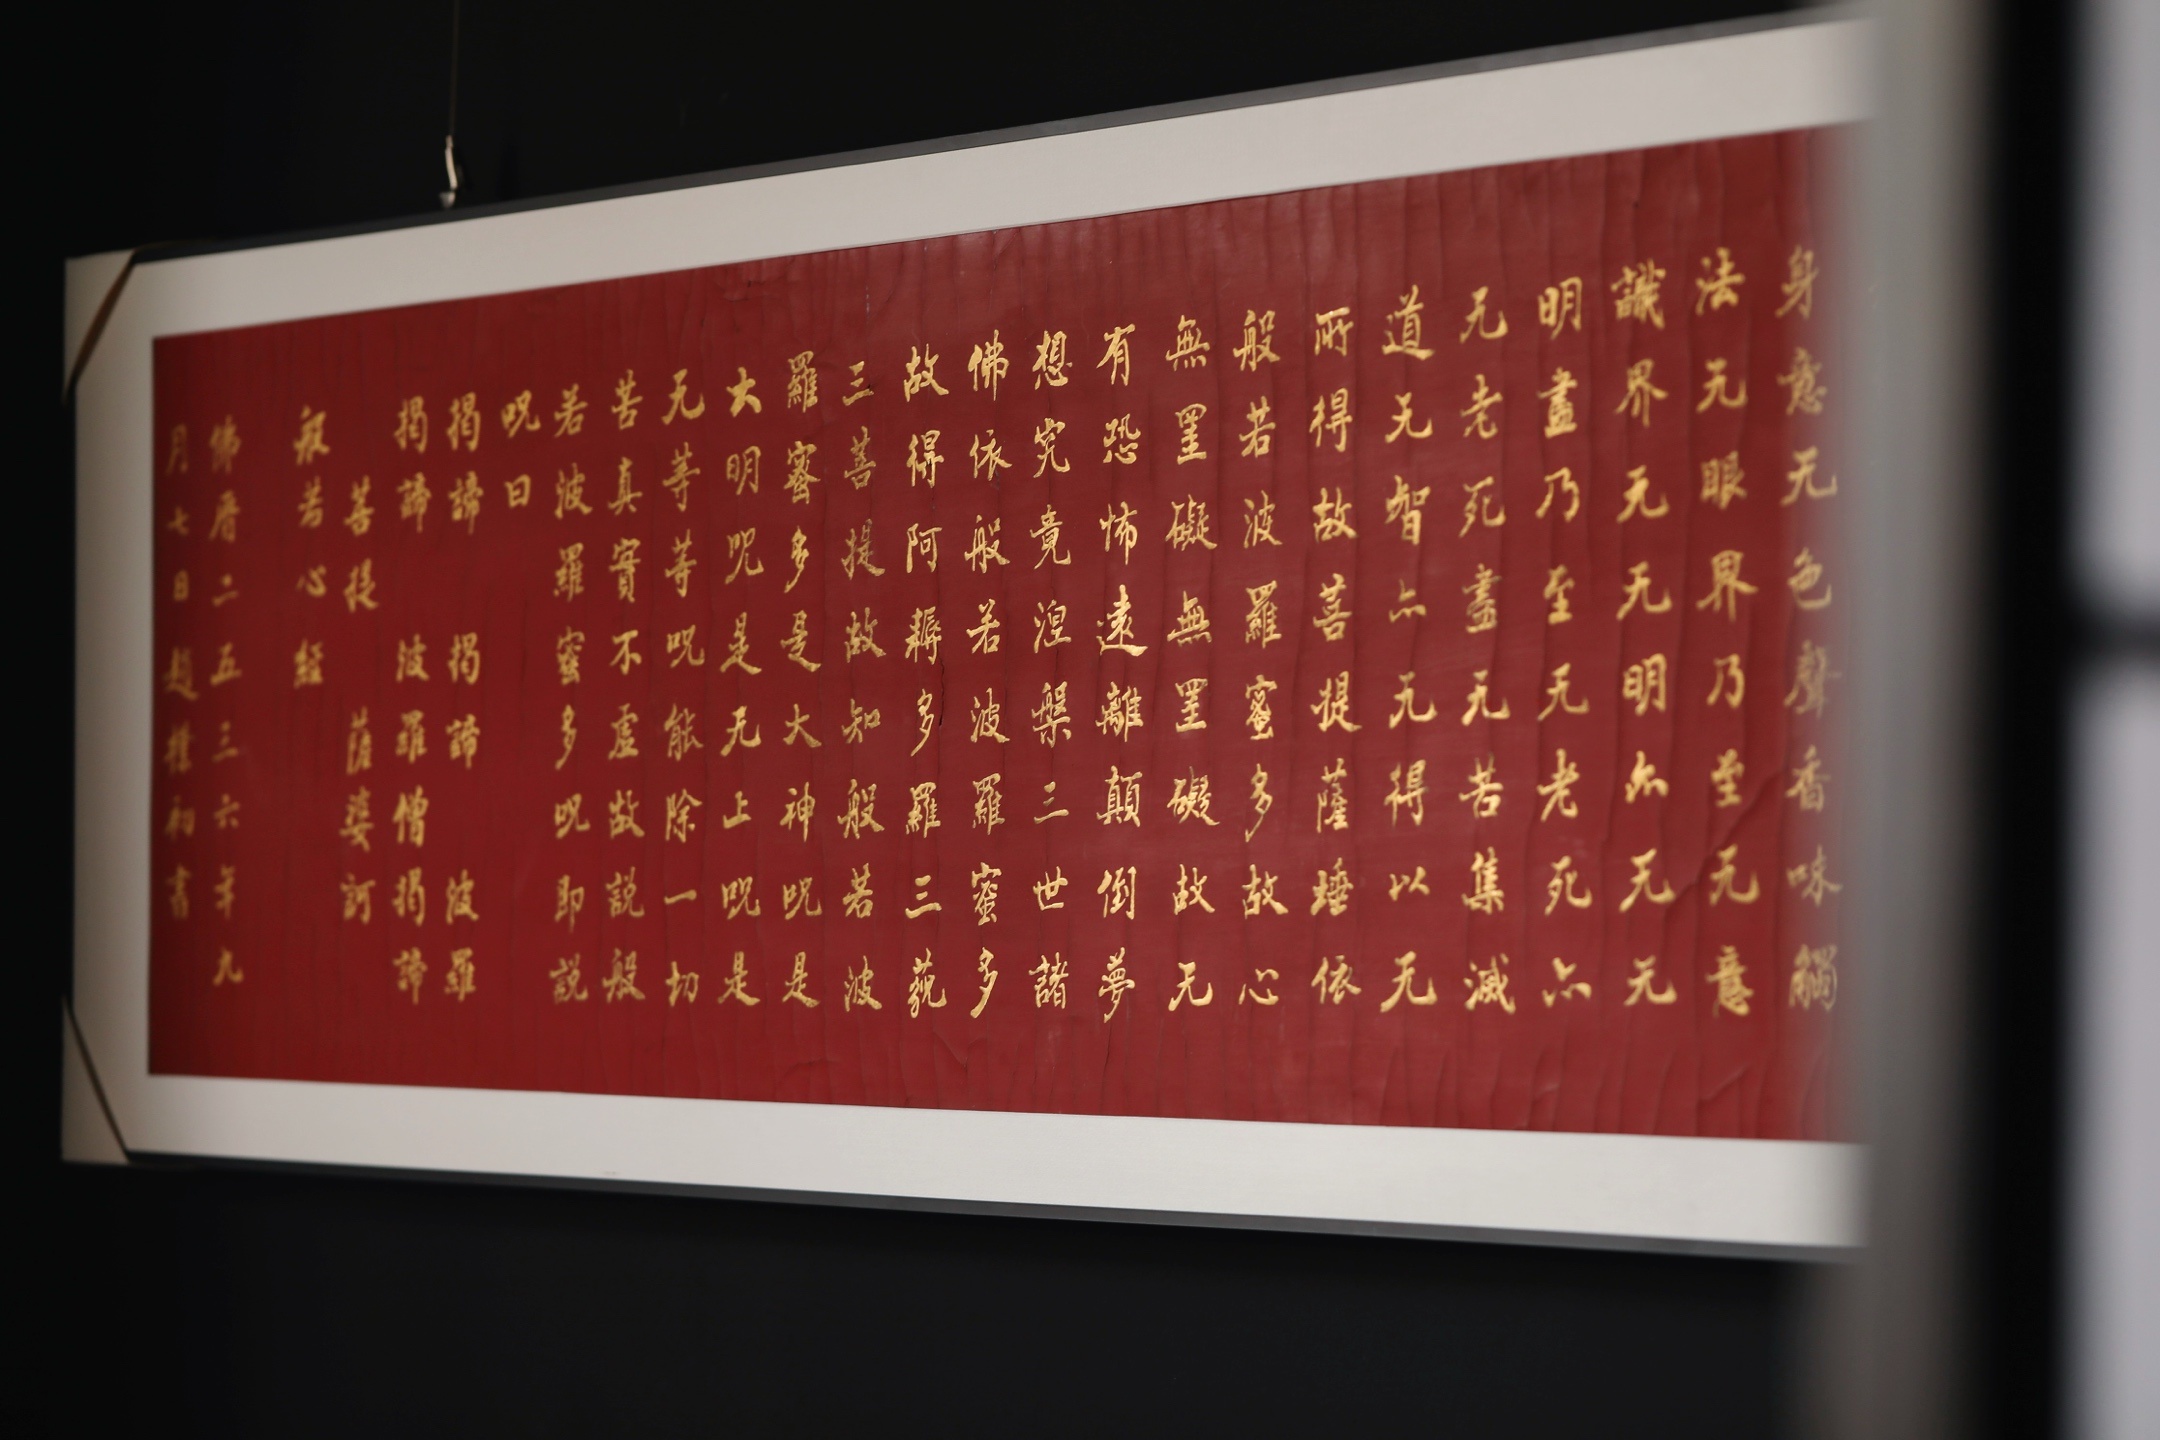 身意无色聲香味觸
法无眼界乃至无意
識界无无明亦无无
明盡乃至无老死亦
无老死盡无苦集滅
道无智亦无得以无
所得故菩提薩埵依
般若波羅蜜多故心
無罣礙無罣礙故无
有恐怖遠離顛倒夢
想究竟涅槃三世諸
佛依般若波羅蜜多
故得阿耨多羅三藐
三菩提故知般若波
羅蜜多是大神呪是
大明呪是无上呪是
无等等呪能除一切
苦真實不虛故説般
若波羅蜜多呪即説
呪曰
揭諦 揭諦 波羅
揭諦 波羅僧揭諦
菩提 薩婆訶
般若心經
佛曆二五三六年九
月七日趙樸初書